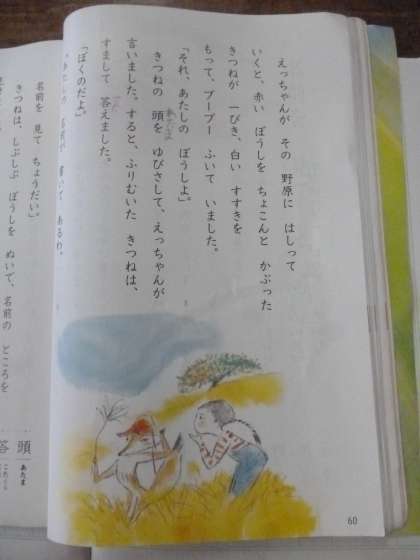 えっちゃんが その 野原に はしって
いくと、赤い ぼうしを ちょこんと かぶった
きつねが 一ぴき、白い すすきを
もって、プープー ふいて いました。
「それ、あたしの ぼうしよ。」
きつねの 頭を ゆびさして、えっちゃんが
言いました。すると、ふりむいた きつねは、
すまして 答えました。
「ぼくのだよ。」
名前が 書いて あるわ。
60
名前を 見て ちょうだい。」
きつねは、しぶしぶ ぼうしを ぬいで、名前の ところを
頭 あたま
答